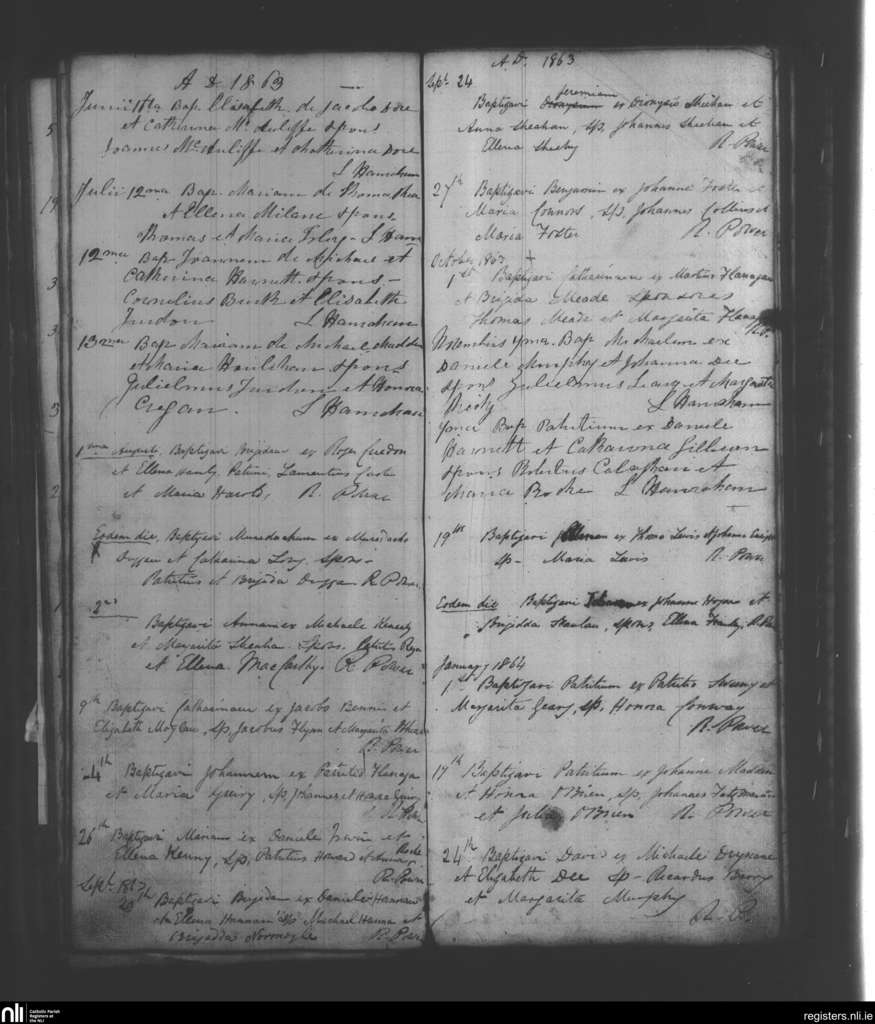 A D 1863
Junii 16ta Bap. Elisabeth de Jacobo Dee
et Catharina McAuliffe spons
Joannes McAuliffe et Chatherina Dee
L Hanrahan
Julii 12ma Bap. Mariam de Thoma Shea
et Ellena Milane spons
Thomas et Maria Foley - L Han
12ma Bap Joannem de Michael et
Catherina Harnett. spons -
Cornelius Buck et Elisabeth
L Hanrahan
13ma Bap Mariam de Michael Madden
et Maria Houlehan spons
Gulielmus et Honora
Cregan. L Hanrahan
1ma Augusti, Baptizavi Brigidam ex Roger
et Ellena Hanly. Patrini, Laurentius
et Maria R. Power
Eodem die, Baptizavi Muredachum ex Muredacho
Duggan et Catharina Long. Spons -
Patritius et Brigida Duggan R Power
2nd
Baptizavi Annam ex Michaele Kennedy
et Margarita Sheahan Spons. Patritus Ryan
et Ellena MacCarthy. R Power
9th Baptizavi Catharinam ex Jacobo Bennin et
Elizabeth, Sp, Jacobus Flynn et Margarita
R. Power
24th Baptizavi Johannem ex Patritio Flanagan
et Maria Geary, Sp Johannes et Honora
R Power
26th Baptizavi Mariam ex Daniele Irwin et
Ellena Kenny, Sp, Patritus Howard et Anna Roche
R. Power
Sept. 1863
20th Baptizavi Brigidam ex Daniele Hannan
et Ellena Hannan Sp Michael Hanna et
Brigidda Normoyle R. Power
A.D. 1863
Sept. 24
Baptizavi Jeremiam ex Dionysio Sheehan et
Anna Sheahan, Sp. Johannes Sheehan et
Ellena Sheehy R. Power
27th Baptizavi Benjamin ex Johanne Foster et
Maria Connors, Sp. Johannes Collins et
Maria Foster R. Power
October 1863
1st Baptizavi Catharinam ex Martino Flanagan
et Brigida Meade sponsores
Thomas Meade et Margarita Flanagan
R.P.
Novembris 9ma. Bap Michaelem ex
Daniele Murphy et Johanna Dee
spons Gulielmus Leary et Margarita
L Hanrahan
9ma Bap Patritium ex Daniele
Harnett et Catharina Gilligan
spons Robertus Calaghan et
Maria Roche L Hanrahan
19th Baptizavi ex Thoma Lewis et Johanna
Sp - Maria Lewis R. Power
Eodem die Baptizavi ex Johanne Hogan et
Brigidda Scanlan, Spons, Ellena Hanly, R. Power
January 1864
1st Baptizavi Patritium ex Patritio Sweeny et
Margarita Geary, Sp. Honora Conway
R. Power
17th Baptizavi Patritium ex Johanne Madden
et Honora O'Brien, Sp. Johannes Fitzmaurice
et Julia O'Brien R. Power
24th Baptizavi David ex Michaele
et Elizabeth Dee Sp - Ricardus Barry
et Margarita Murphy
R. P.
5
19
3
3
3
2
1
nli Catholic Parish
Registers at
the NLI
registers.nli.ie